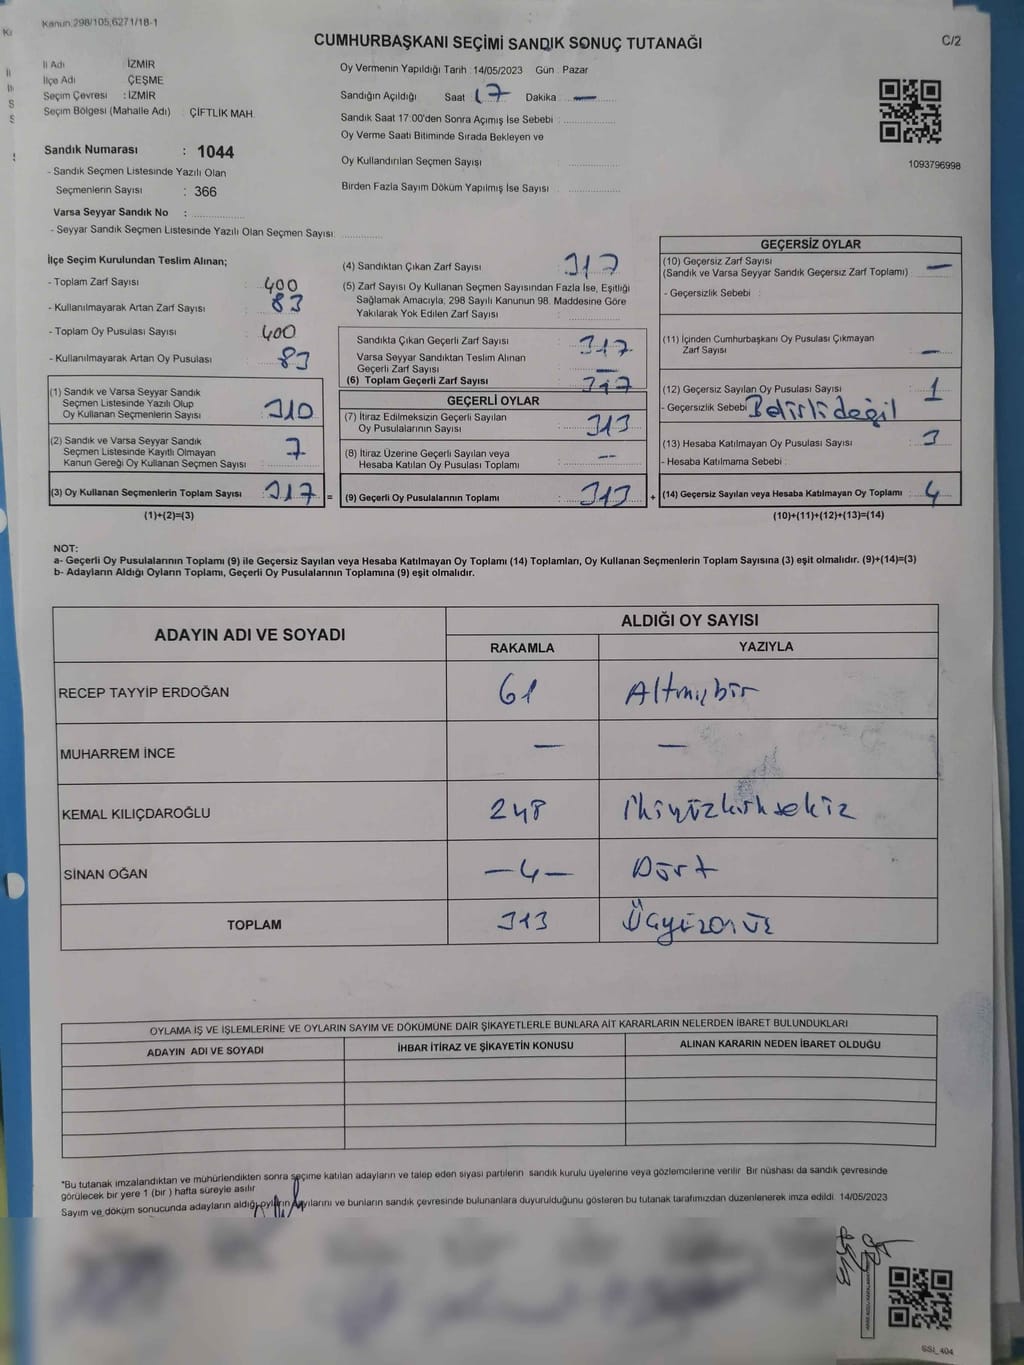 Kanun:298/105,6271/18-1
C/2
CUMHURBAŞKANI SEÇİMİ SANDIK SONUÇ TUTANAĞI
İl Adı İZMİR
İlçe Adı ÇEŞME
Seçim Çevresi : İZMİR
Seçim Bölgesi (Mahalle Adı) : ÇİFTLİK MAH.
Oy Vermenin Yapıldığı Tarih : 14/05/2023 Gün : Pazar
Sandığın Açıldığı Saat 17 Dakika —
Sandık Saat 17:00'den Sonra Açımış İse Sebebi :
Oy Verme Saati Bitiminde Sırada Bekleyen ve
Oy Kullandırılan Seçmen Sayışı
Birden Fazla Sayım Döküm Yapılmış İse Sayısı
1093796998
Sandık Numarası : 1044
- Sandık Seçmen Listesinde Yazılı Olan
Seçmenlerin Sayısı : 366
Varsa Seyyar Sandık No :
- Seyyar Sandık Seçmen Listesinde Yazılı Olan Seçmen Sayısı:
İlçe Seçim Kurulundan Teslim Alınan;
- Toplam Zarf Sayısı : 400
- Kullanılmayarak Artan Zarf Sayısı : 83
- Toplam Oy Pusulası Sayısı : 400
- Kullanılmayarak Artan Oy Pusulası : 83
(1) Sandık ve Varsa Seyyar Sandık
Seçmen Listesinde Yazılı Olup
Oy Kullanan Seçmenlerin Sayısı : 310
(2) Sandık ve Varsa Seyyar Sandık
Seçmen Listesinde Kayıtlı Olmayan
Kanun Gereği Oy Kullanan Seçmen Sayısı : 7
(3) Oy Kullanan Seçmenlerin Toplam Sayısı : 317 =
(1)+(2)=(3)
(4) Sandıktan Çıkan Zarf Sayısı : 317
(5) Zarf Sayısı Oy Kullanan Seçmen Sayısından Fazla İse, Eşitliği
Sağlamak Amacıyla, 298 Sayılı Kanunun 98. Maddesine Göre
Yakılarak Yok Edilen Zarf Sayısı :
Sandıkta Çıkan Geçerli Zarf Sayısı : 317
Varsa Seyyar Sandıktan Teslim Alınan
Geçerli Zarf Sayısı : —
(6) Toplam Geçerli Zarf Sayısı : 317
GEÇERLİ OYLAR
(7) İtiraz Edilmeksizin Geçerli Sayılan
Oy Pusulalarının Sayısı : 313
(8) İtiraz Üzerine Geçerli Sayılan veya
Hesaba Katılan Oy Pusulası Toplamı : —
(9) Geçerli Oy Pusulalarının Toplamı : 313 +
GEÇERSİZ OYLAR
(10) Geçersiz Zarf Sayısı
(Sandık ve Varsa Seyyar Sandık Geçersiz Zarf Toplamı) : —
- Geçersizlik Sebebi :
(11) İçinden Cumhurbaşkanı Oy Pusulası Çıkmayan
Zarf Sayısı : —
(12) Geçersiz Sayılan Oy Pusulası Sayısı : 1
- Geçersizlik Sebebi Belirli değil
(13) Hesaba Katılmayan Oy Pusulası Sayısı : 3
- Hesaba Katılmama Sebebi :
(14) Geçersiz Sayılan veya Hesaba Katılmayan Oy Toplamı : 4
(10)+(11)+(12)+(13)=(14)
NOT:
a- Geçerli Oy Pusulalarının Toplamı (9) ile Geçersiz Sayılan veya Hesaba Katılmayan Oy Toplamı (14) Toplamları, Oy Kullanan Seçmenlerin Toplam Sayısına (3) eşit olmalıdır. (9)+(14)=(3)
b- Adayların Aldığı Oyların Toplamı, Geçerli Oy Pusulalarının Toplamına (9) eşit olmalıdır.
ADAYIN ADI VE SOYADI
ALDIĞI OY SAYISI
RAKAMLA YAZIYLA
RECEP TAYYİP ERDOĞAN 61 Altmışbir
MUHARREM İNCE — —
KEMAL KILIÇDAROĞLU 248 İkiyüzkırksekiz
SİNAN OĞAN —4— Dört
TOPLAM 313 Üçyüzonüç
OYLAMA İŞ VE İŞLEMLERİNE VE OYLARIN SAYIM VE DÖKÜMÜNE DAİR ŞİKAYETLERLE BUNLARA AİT KARARLARIN NELERDEN İBARET BULUNDUKLARI
ADAYIN ADI VE SOYADI İHBAR İTİRAZ VE ŞİKAYETİN KONUSU ALINAN KARARIN NEDEN İBARET OLDUĞU
"Bu tutanak imzalandıktan ve mühürlendikten sonra seçime katılan adayların ve talep eden siyasi partilerin sandık kurulu üyelerine veya gözlemcilerine verilir Bir nüshası da sandık çevresinde
görülecek bir yere 1 (bir ) hafta süreyle asılır
Sayım ve döküm sonucunda adayların aldığı oyların sayılarını ve bunların sandık çevresinde bulunanlara duyurulduğunu gösteren bu tutanak tarafımızdan düzenlenerek imza edildi. 14/05/2023
SSI_404